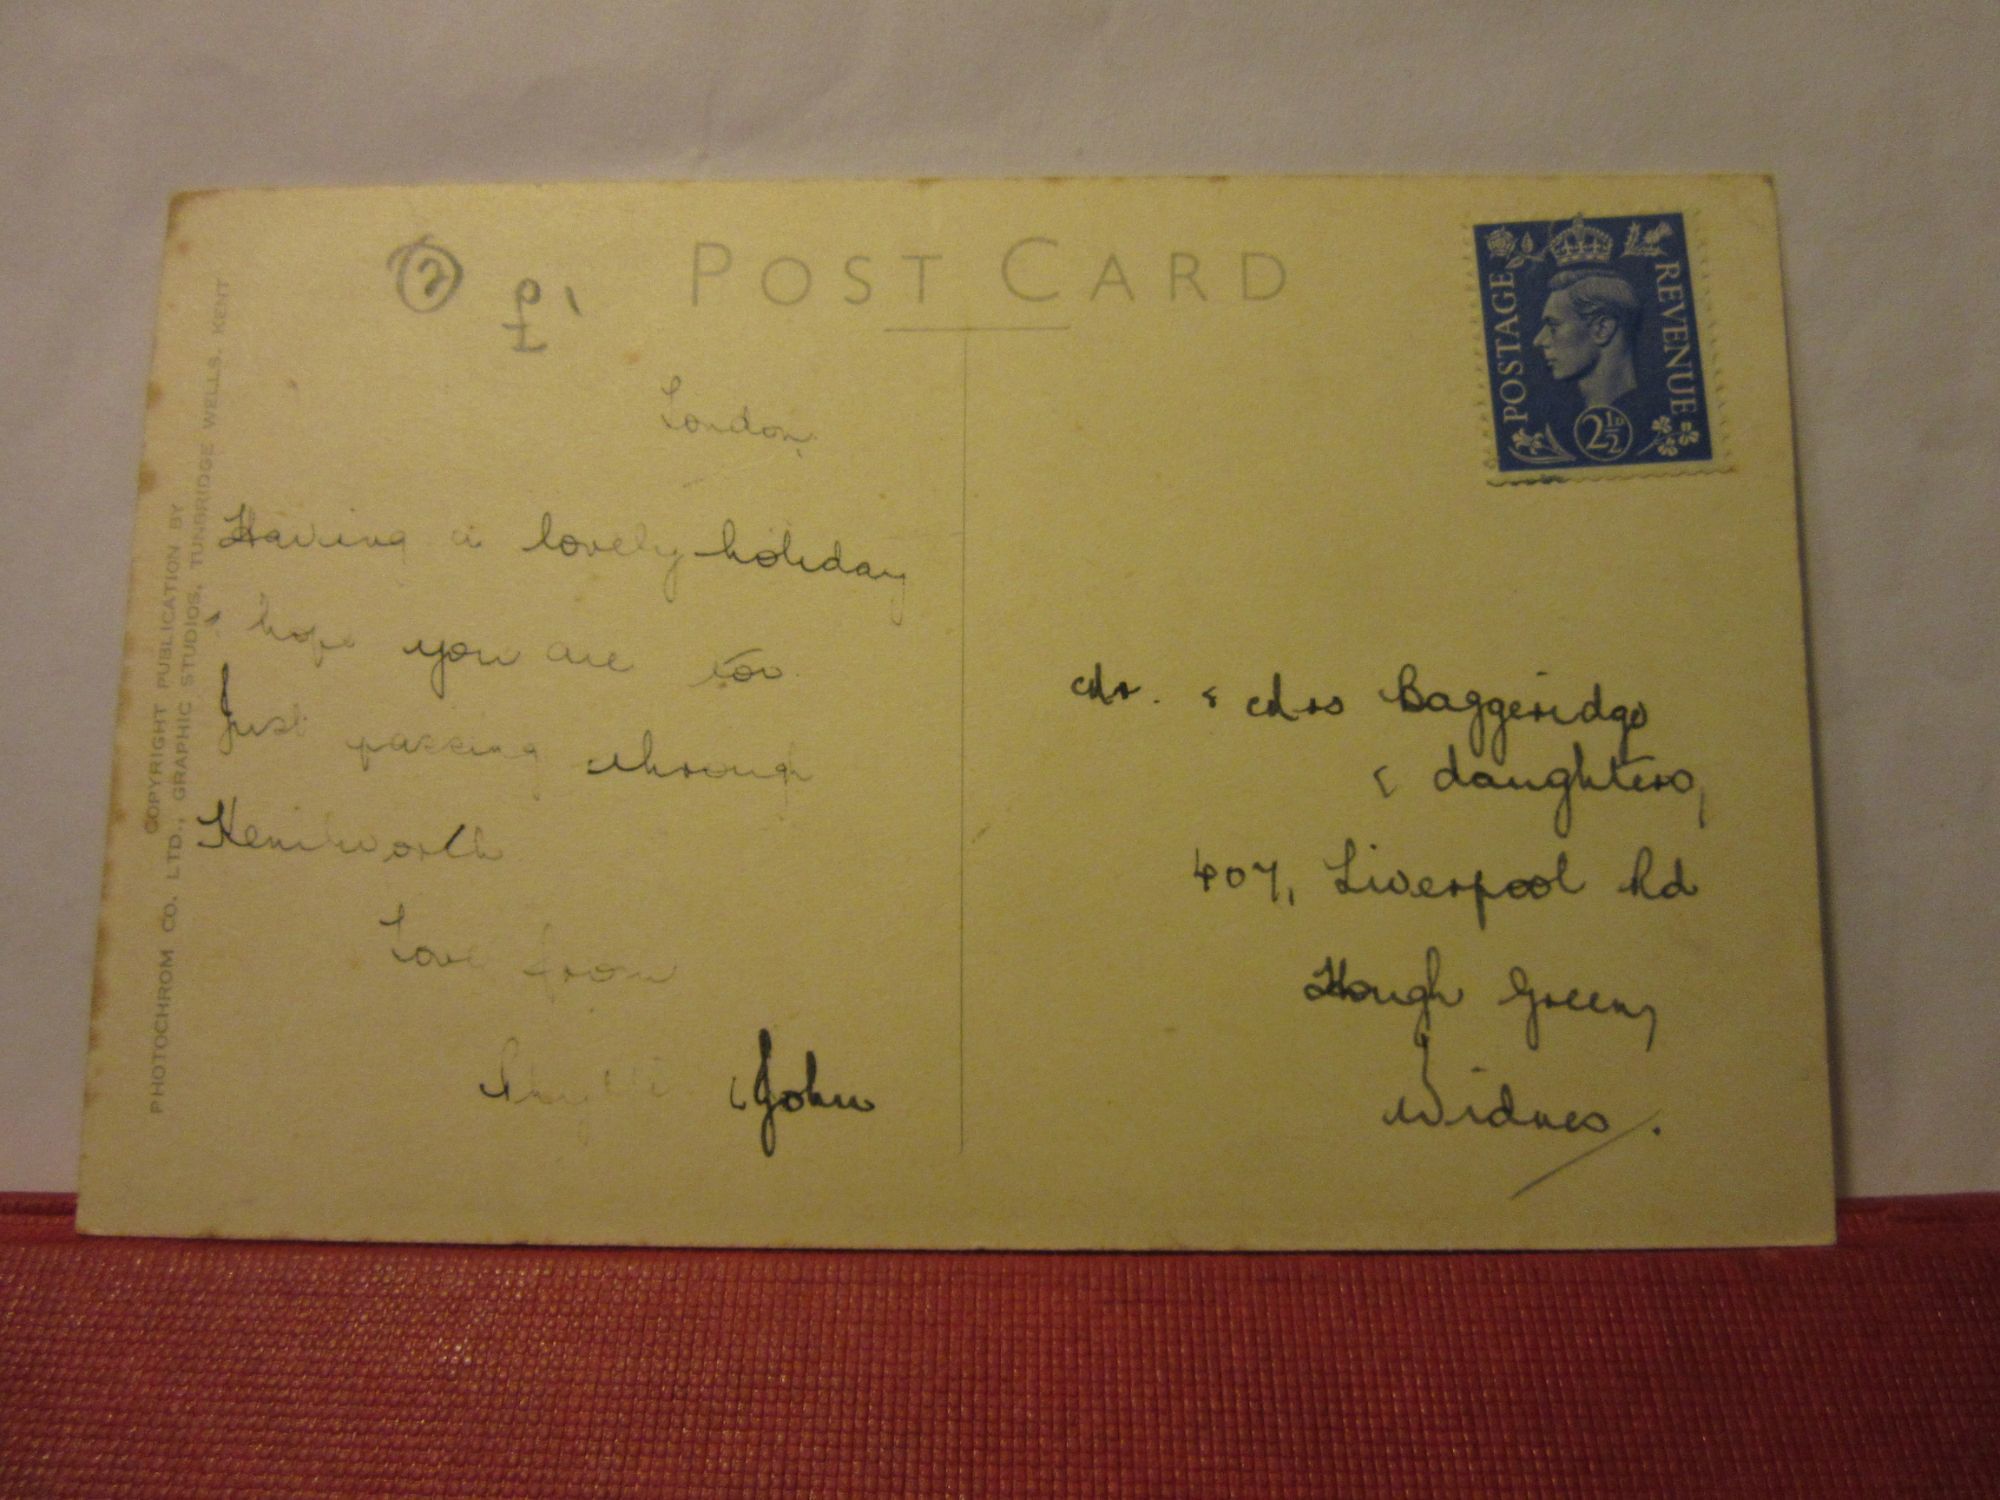 POST CARD
£1
POSTAGE
REVENUE
2½D
COPYRIGHT PUBLICATION BY
PHOTOCHROM CO. LTD., GRAPHIC STUDIOS, TUNBRIDGE WELLS, KENT
London,
Having a lovely holiday
& hope you are too.
Just passing through
Kenilworth
Love from
& John
Mr. & Mrs Baggeridge
& daughters,
407, Liverpool Rd
Hough Green,
Widnes.